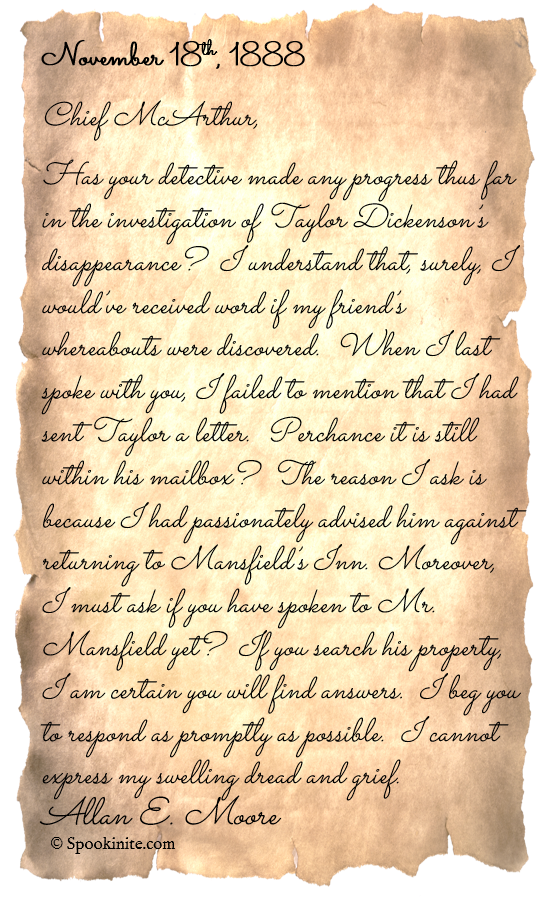 November 18th, 1888
Chief McArthur,
Has your detective made any progress thus far
in the investigation of Taylor Dickenson's
disappearance? I understand that, surely, I
would've received word if my friend's
whereabouts were discovered. When I last
spoke with you, I failed to mention that I had
sent Taylor a letter. Perchance it is still
within his mailbox? The reason I ask is
because I had passionately advised him against
returning to Mansfield's Inn. Moreover,
I must ask if you have spoken to Mr.
Mansfield yet? If you search his property,
I am certain you will find answers. I beg you
to respond as promptly as possible. I cannot
express my swelling dread and grief.
Allan E. Moore
© Spookinite.com